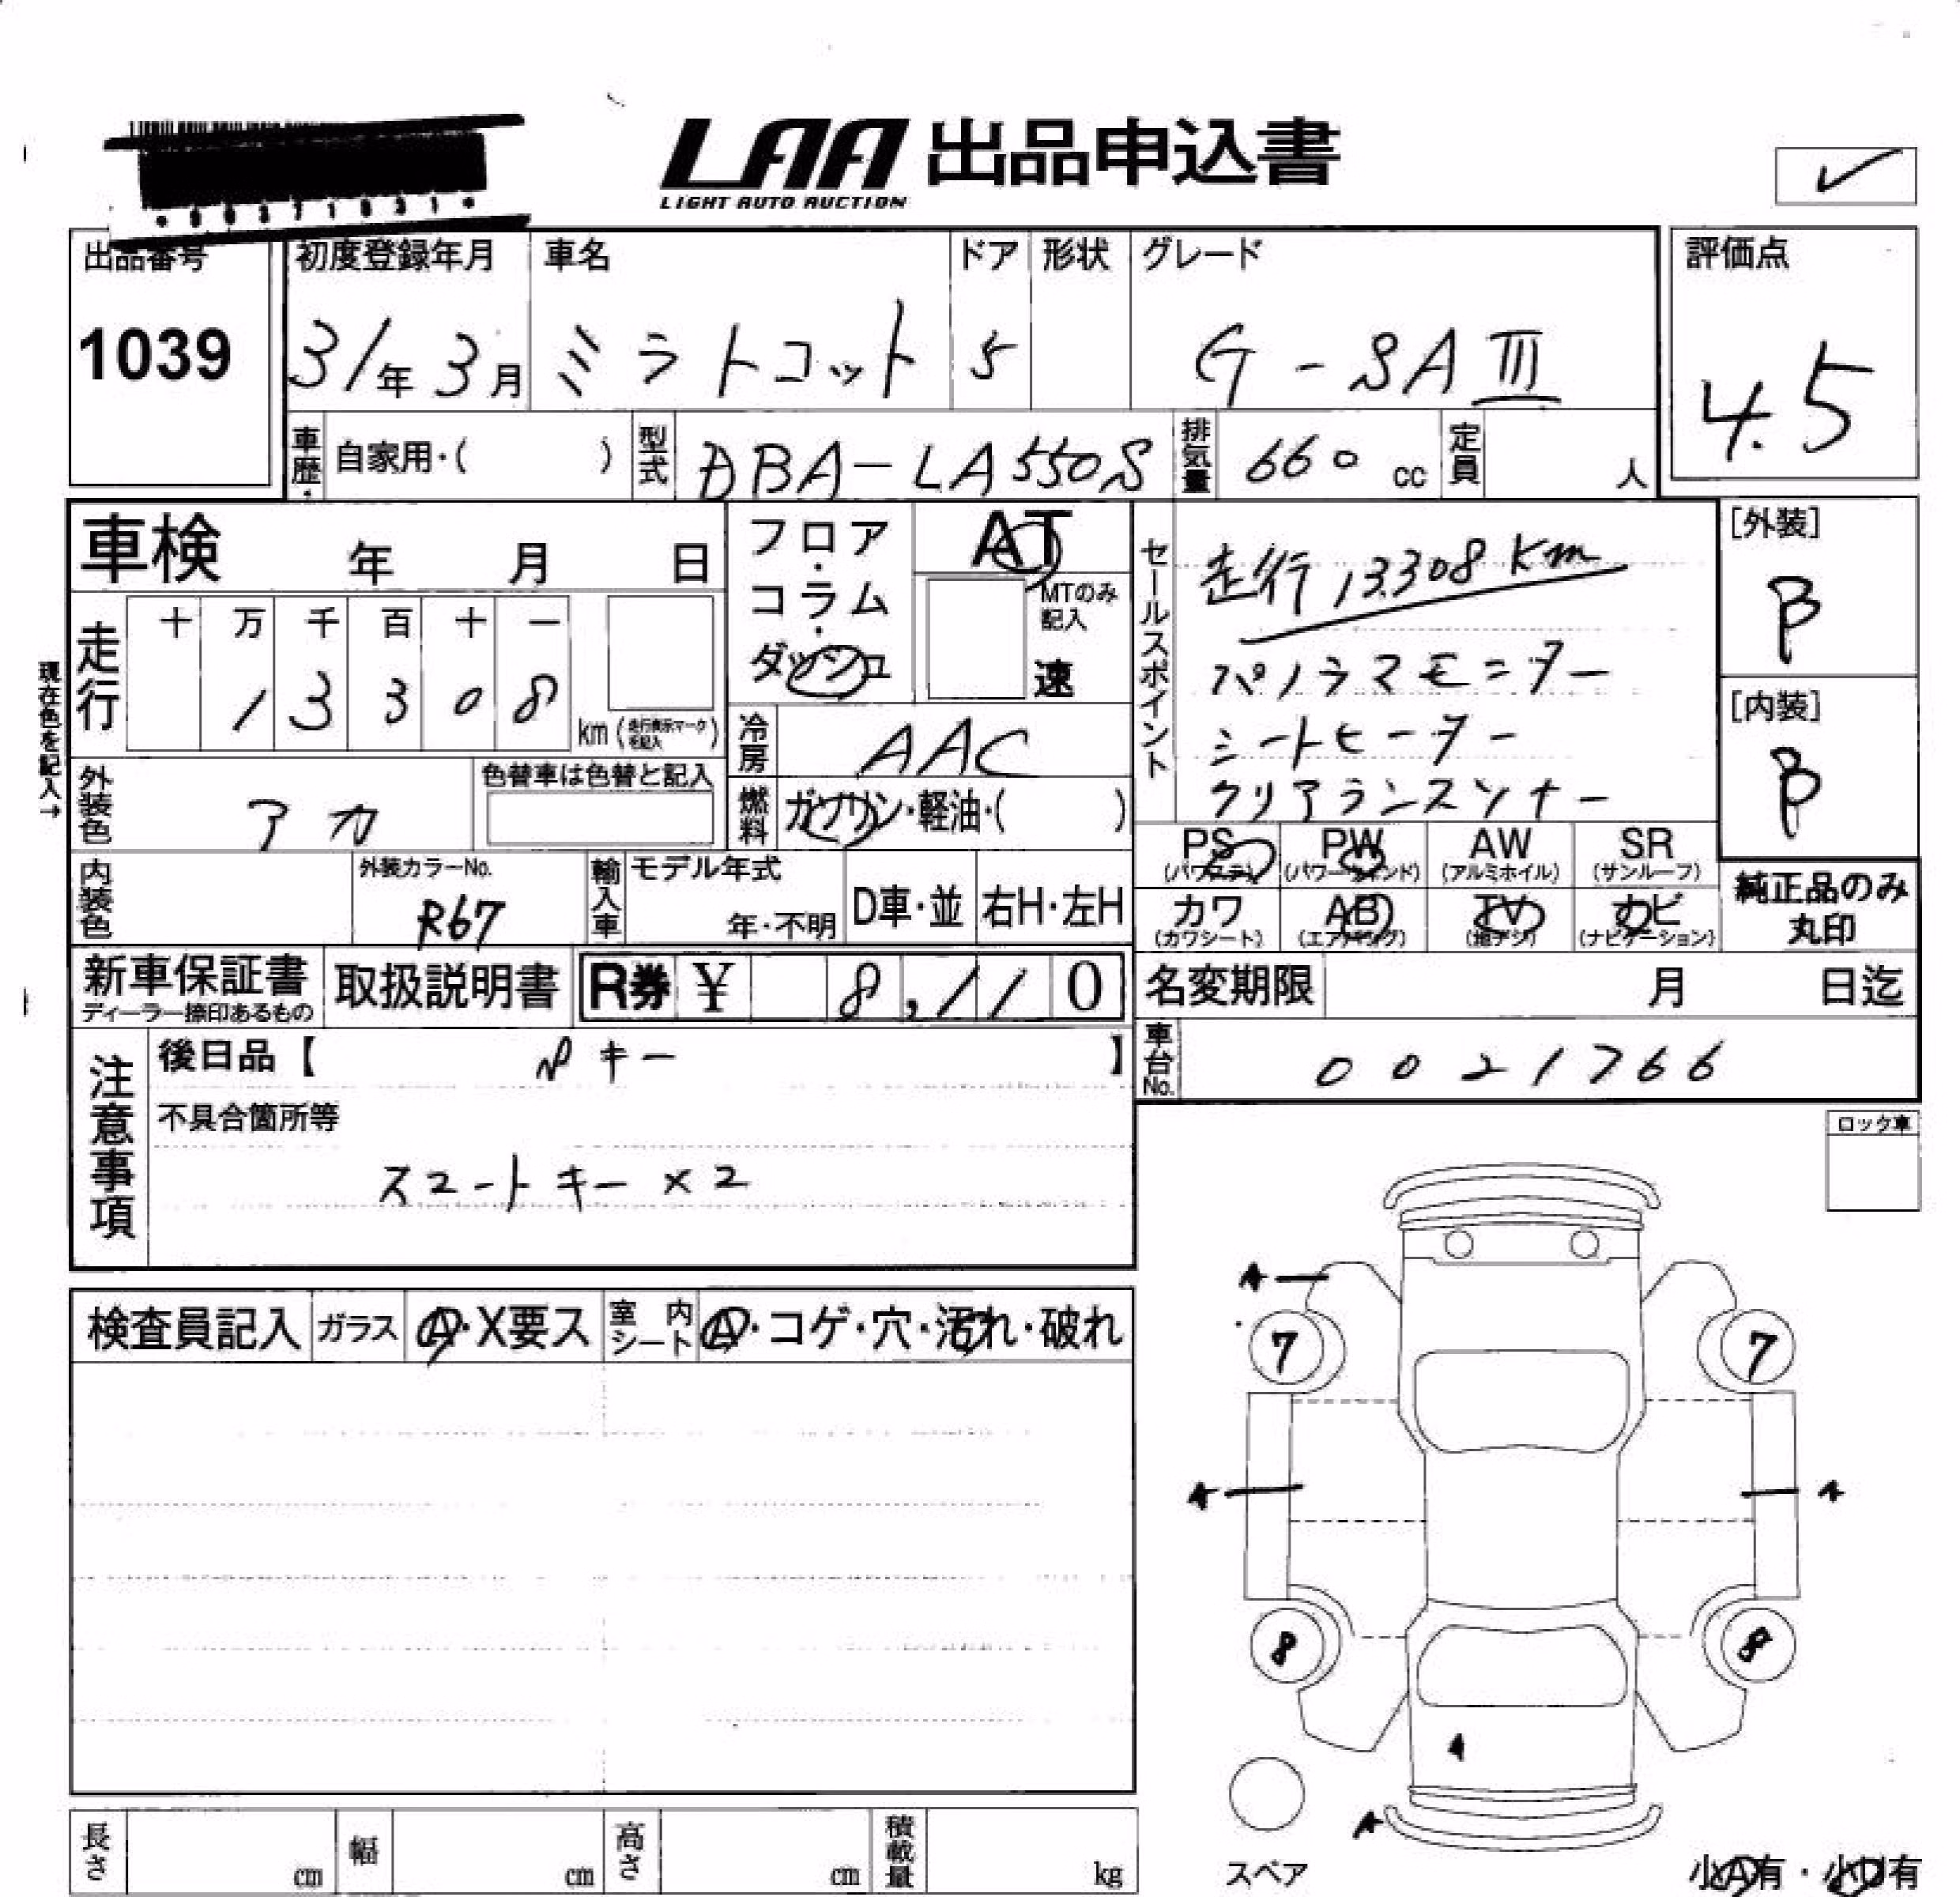 LAA 出品申込書
LIGHT AUTO AUCTION
出品番号 初度登録年月 車名 ドア 形状 グレード 評価点
1039 31年 3月 ミラトコット 5 G-SAⅢ 4.5
車歴 自家用・( ) 型式 DBA-LA550S 排気量 660 cc 定員 人
車検 年 月 日
フロア・コラム・ダッシュ
AT
MTのみ記入
速
セールスポイント
走行 13308km
パノラマモニター
シートヒーター
クリアランスソナー
[外装]
B
[内装]
B
現在色を記入→
走行 十 万 千 百 十 一
1 3 3 0 8 km (走行表示マーク を記入)
冷房 AAC
外装色 アカ 色替車は色替と記入
燃料 ガソリン・軽油・( )
PS (パワステ) PW (パワーウインド) AW (アルミホイル) SR (サンルーフ)
カワ (カワシート) AB (エアバッグ) TV (地デジ) ナビ (ナビゲーション)
純正品のみ
丸印
内装色 外装カラーNo. R67 輸入車 モデル年式 年・不明 D車・並 右H・左H
新車保証書 ディーラー捺印あるもの 取扱説明書 R券 ¥ 8,110 名変期限 月 日迄
車台No. 0021766
注意事項
後日品【 キー 】
不具合箇所等
スマートキー×2
ロック車
検査員記入 ガラス A・X要ス 室内シート A・コゲ・穴・汚れ・破れ
A
7 7
A A
8 8
A
A
スペア
小A有・小U有
長さ cm 幅 cm 高さ cm 積載量 kg